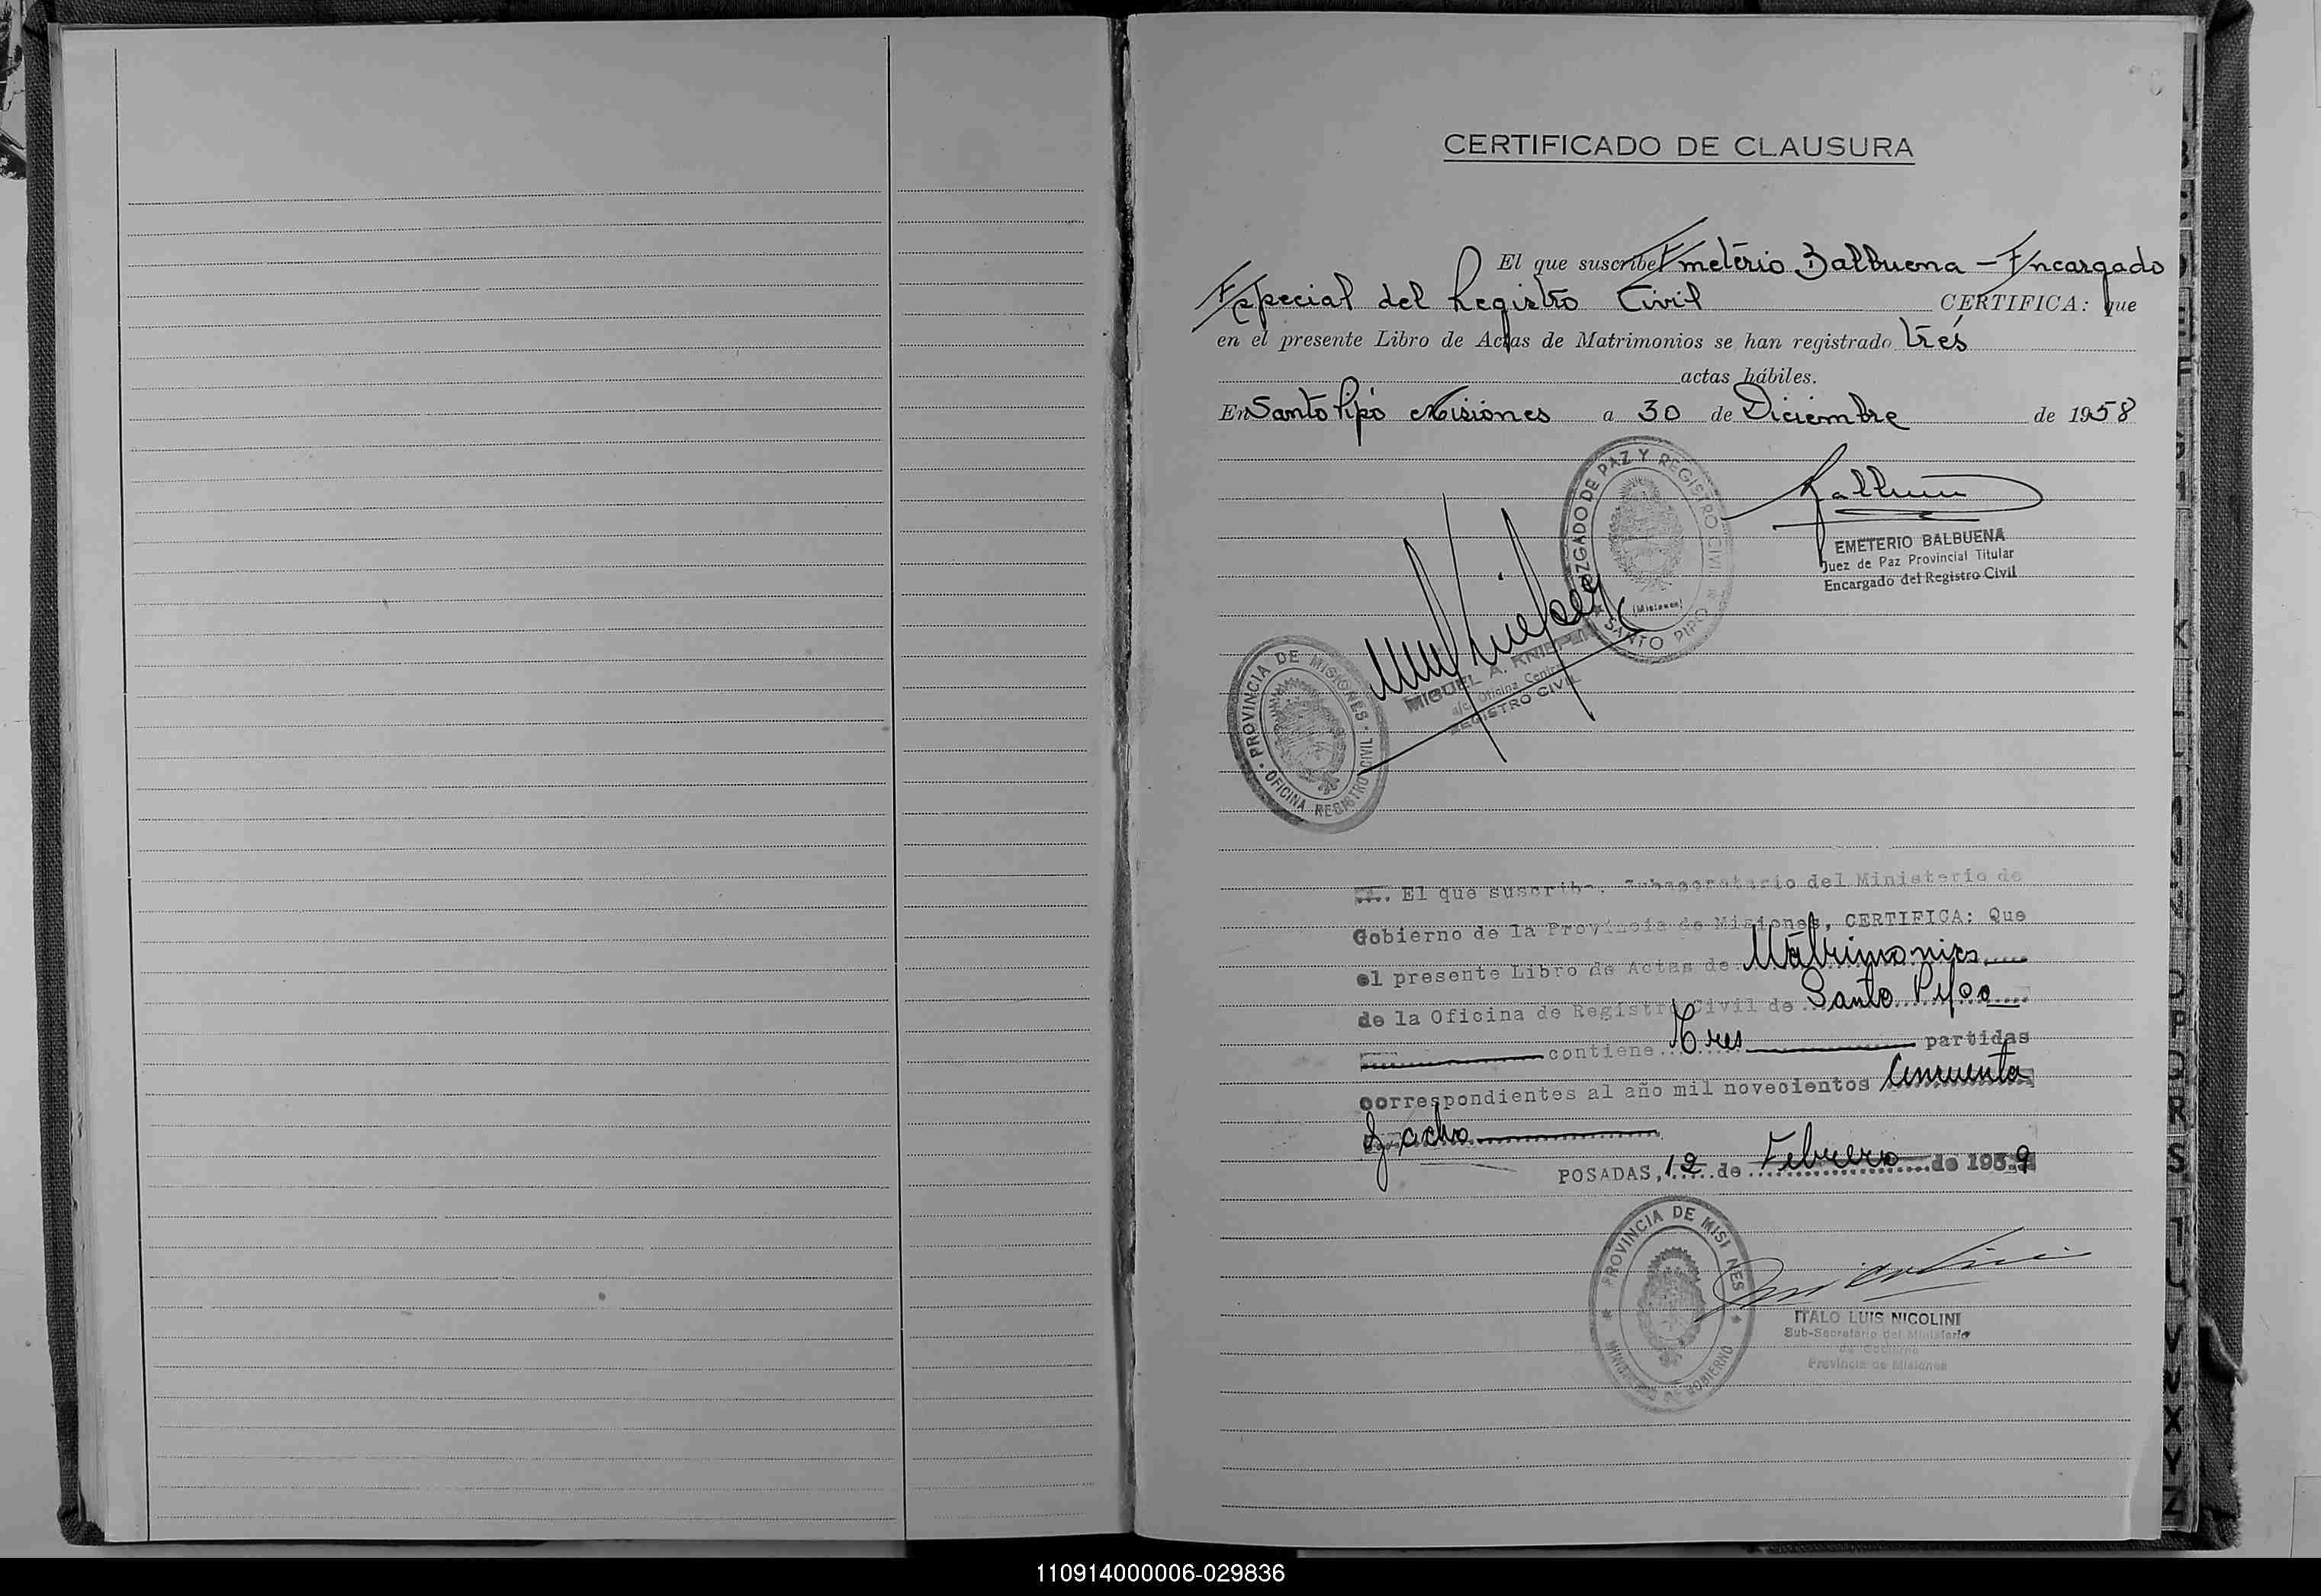 CERTIFICADO DE CLAUSURA
El que suscribe Emeterio Balbuena - Encargado
Especial del Registro Civil CERTIFICA: que
en el presente Libro de Actas de Matrimonios se han registrado trés
actas hábiles.
En Santo Pipó Misiones a 30 de Diciembre de 1958
JUZGADO DE PAZ Y REGISTRO CIVIL
(Misiones)
SANTO PIPO
EMETERIO BALBUENA
Juez de Paz Provincial Titular
Encargado del Registro Civil
MIGUEL A.
a/c Oficina Central
REGISTRO CIVIL
PROVINCIA DE MISIONES
OFICINA REGISTRO CIVIL
El que suscribe, Subsecretario del Ministerio de
Gobierno de la Provincia de Misiones, CERTIFICA: Que
el presente Libro de Actas de Matrimonios
de la Oficina de Registro Civil de Santo Pipo
contiene Tres partidas
correspondientes al año mil novecientos cincuenta
y ocho
POSADAS, 12 de Febrero de 1959
PROVINCIA DE MISIONES
MINISTERIO DE GOBIERNO
ITALO LUIS NICOLINI
Sub-Secretario del Ministerio
de Gobierno
Provincia de Misiones
A
B
C
D
E
F
G
H
I
J
K
L
M
N
Ñ
O
P
Q
R
S
T
U
V
W
X
Y
Z
110914000006-029836